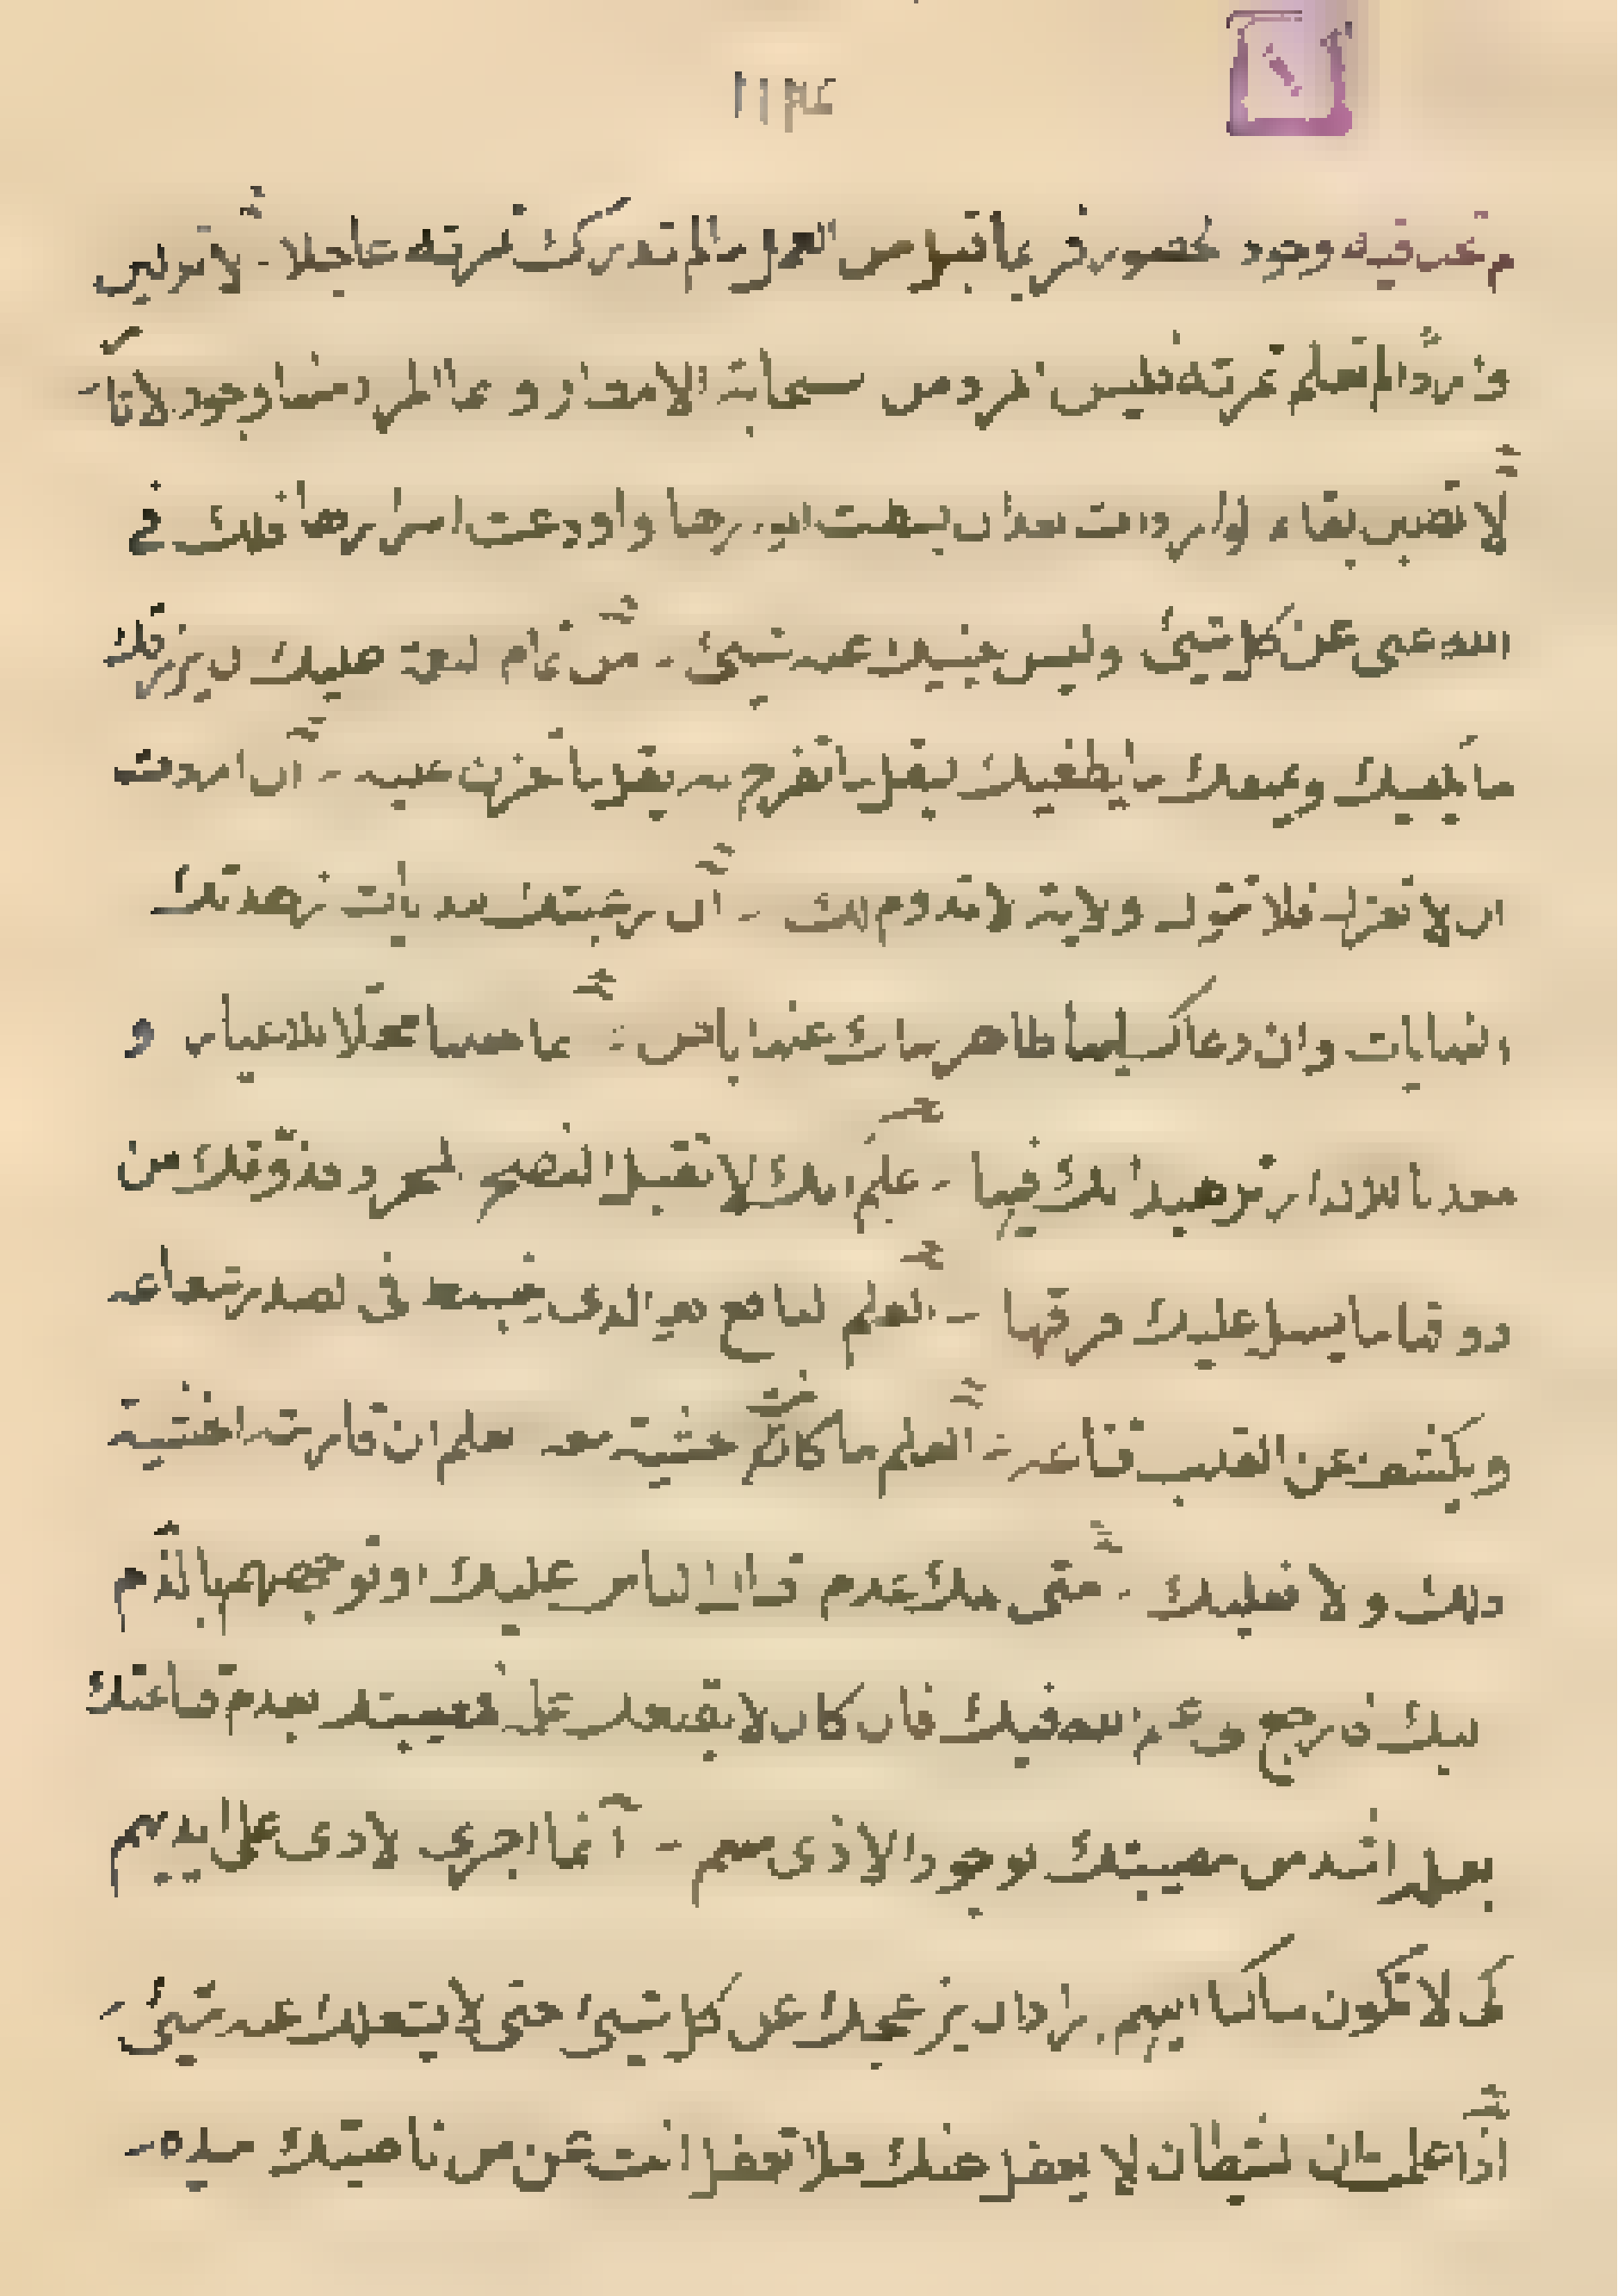 لم تجد فيه وجود حضور فربما قبل من العمل ما لم تدرك ثمرته عاجلا - لا تزكين
واردا لم تعلم ثمرته فليس المراد من سحابة الامطار وانما المراد منها وجود الاثمار
لا تطلبن بقاء الواردات بعد ان بسطت انوارها واودعت اسرارها فلك في
الله غنى عن كل شيئ وليس يغنيك عنه شيئ - من تمام النعمة عليك ان يرزقك
ما يكفيك ويمنعك ما يطغيك ليقل ما تفرح به يقل ما تحزن عليه - ان اردت
ان لا تعزل فلا تتول ولاية لا تدوم لك - ان رغبتك البدايات زهدتك
النهايات وان دعاك اليها ظاهر نهاك عنها باطن - انما جعلها محلا للاغيار و
معدنا للاكدار تزهيدا لك فيها - علم انك لا تقبل النصح المجرد فذوقك من
ذواقها ما يسهل عليك فراقها - العلم النافع هو الذى ينبسط فى الصدر شعاعه
ويكشف عن القلب قناعه - العلم ما كانت خشية معه العلم ان قارنته الخشية
فلك والا فعليك - متى المك عدم اقبال الناس عليك او توجههم بالذم
اليك فارجع الى علم الله فيك فان كان لا يقنعك علمه فمصيبتك بعدم قناعتك
بعلمه اشد من مصيبتك بوجود الاذى منهم - انما اجرى الاذى على ايديهم
كى لا تكون ساكنا اليهم اراد ان يزعجك عن كل شيئ حتى لا يشغلك عنه شيئ
اذا علمت ان الشيطان لا يغفل عنك فلا تغفل انت عمن ناصيتك بيده -